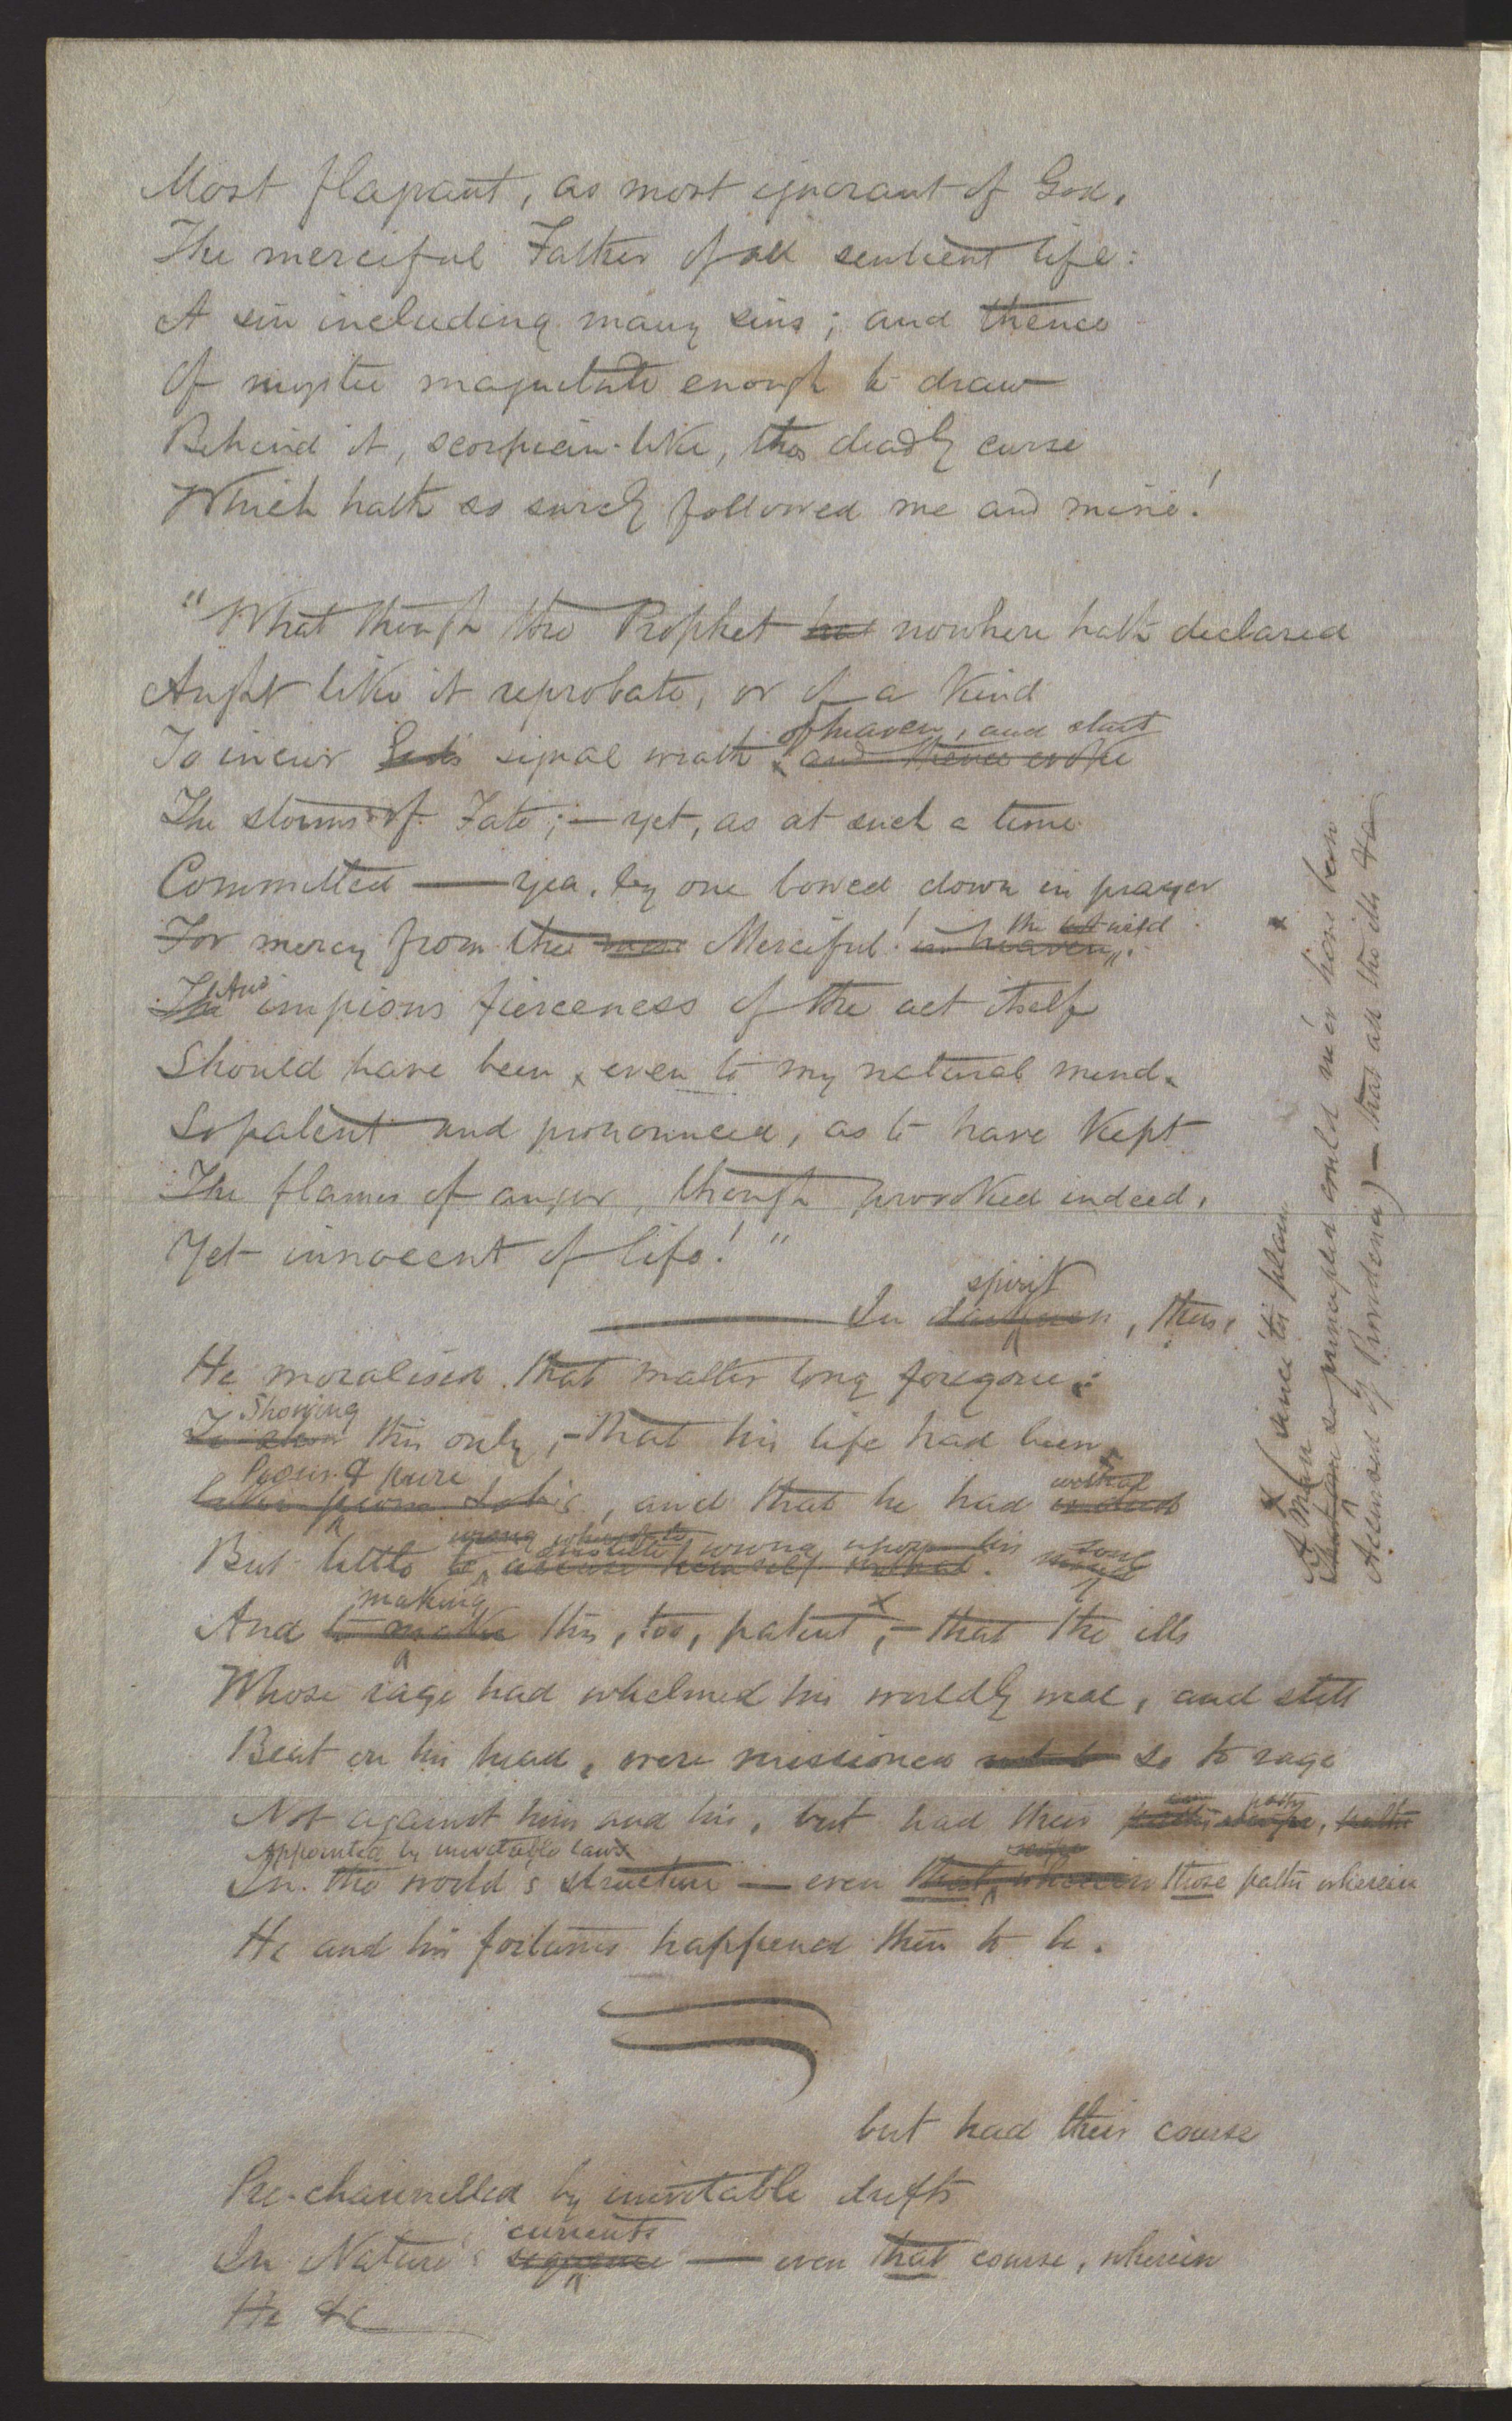 Most flagrant, as most ignorant of God,
The merciful Father of all sentient life:
A sin including many sins; and thence
Of mystic magnitude enough to draw
Behind it, scorpion-like, the deadly curse
Which hath so surely followed me and mine!
"What though the Prophet hath nowhere hath declared
Aught like it reprobate, or of a kind
of heaven, and start
To incur God's signal wrath, and thence evoke
The storms of Fate;—yet, as at such a time
Committed — yea, by one bowed down in prayer
the
For mercy from the most Merciful! in heaven,
And
The impious fierceness of the act itself
Should have been, even to my natural mind,
So patent and pronounced, as to have kept
The flames of anger, though provoked indeed,
Yet innocent of life!"
spirit
— In darkness, thus,
He moralised that matter long foregone:
Showing
To show this only,—that his life had been
Pious & pure
, and that he had
wrong upon his soul
But little to accuse himself withal.
making
And to make this, too, patent,—that the ills
Whose rage had whelmed his worldly weal, and still
Beat on his head, were missioned so to rage
Not against him and his, but had their paths
Appointed by inevitable laws
In the world's structure — even those paths wherein
He and his fortunes happened then to be.
but had their course
Pre-channelled by inevitable drifts
currents
In Nature's sequence — even that course, wherein
He &c
x (since 'tis plain
A man so principled could ne'er have been
Accursed of Providence) — that all the ills &c